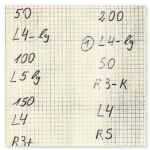 50
L4-lg
100
L5lg
150
L4
R3+
200
① L4-lg
50
R3-K
L4
R5